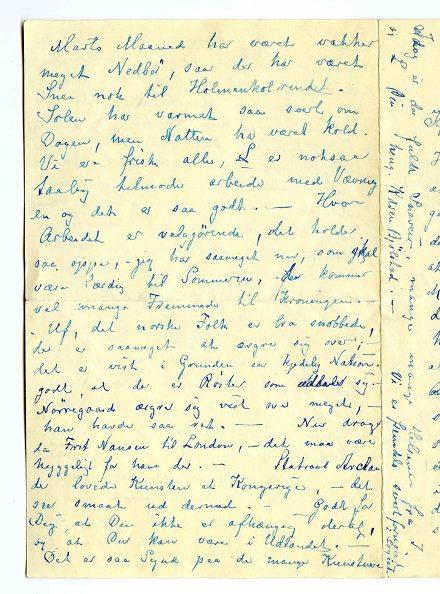 Marts Maaned har været vakker
meget Nedbör, saa der har været
Snee nok til Holmenkolrendet.
Solen har varmet saa svært om
Dagen, men Natten har været kold.
Vi er friske alle, L er noksaa
taalig tilmode arbeide med Vævning
en og det er saa godt. — Hvor
Arbeidet er velgjörende, det holder
saa oppe, - jeg har saameget nu, som skal
være færdig til Sommeren, der kommer
vel mange Fremmede til Kroningen. -
Uf, det norske Folk er bra snobbede,
de er saameget at ærgre sig over, -
det er vist i Grunden en kjedelig Nation.
godt, at de er Röster som
Nörregaard ærgre sig vist ove meget, -
han havde saa ret. — Nu drage
da Frit Nansen til London, - det maa være
hyggeligt for ham der. - Statsraad
de lovede Kunsten et Kongerige, - det
seer smaat ud dermed. — Godt for
Dig, at Du ikke er afhængig deraf,
og at Du kan være i Udlandet. —
Det er saa Synd paa de mange Kunstnere
Idag er de fulde Snevær! mange Hilsener fra I
og L Din heng. Vi er fremdeles svært fornöiet